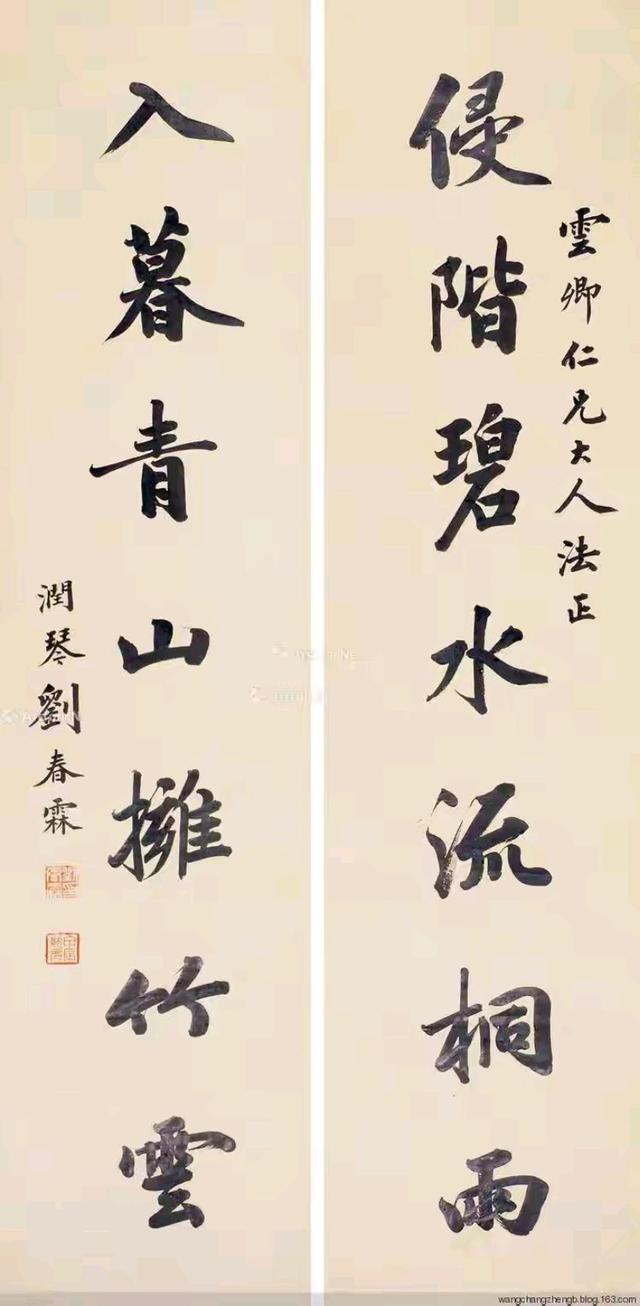 雲卿仁兄大人法正
侵階碧水流桐雨
入暮青山擁竹雲
潤琴劉春霖
wangchangzhengb.blog.163.com